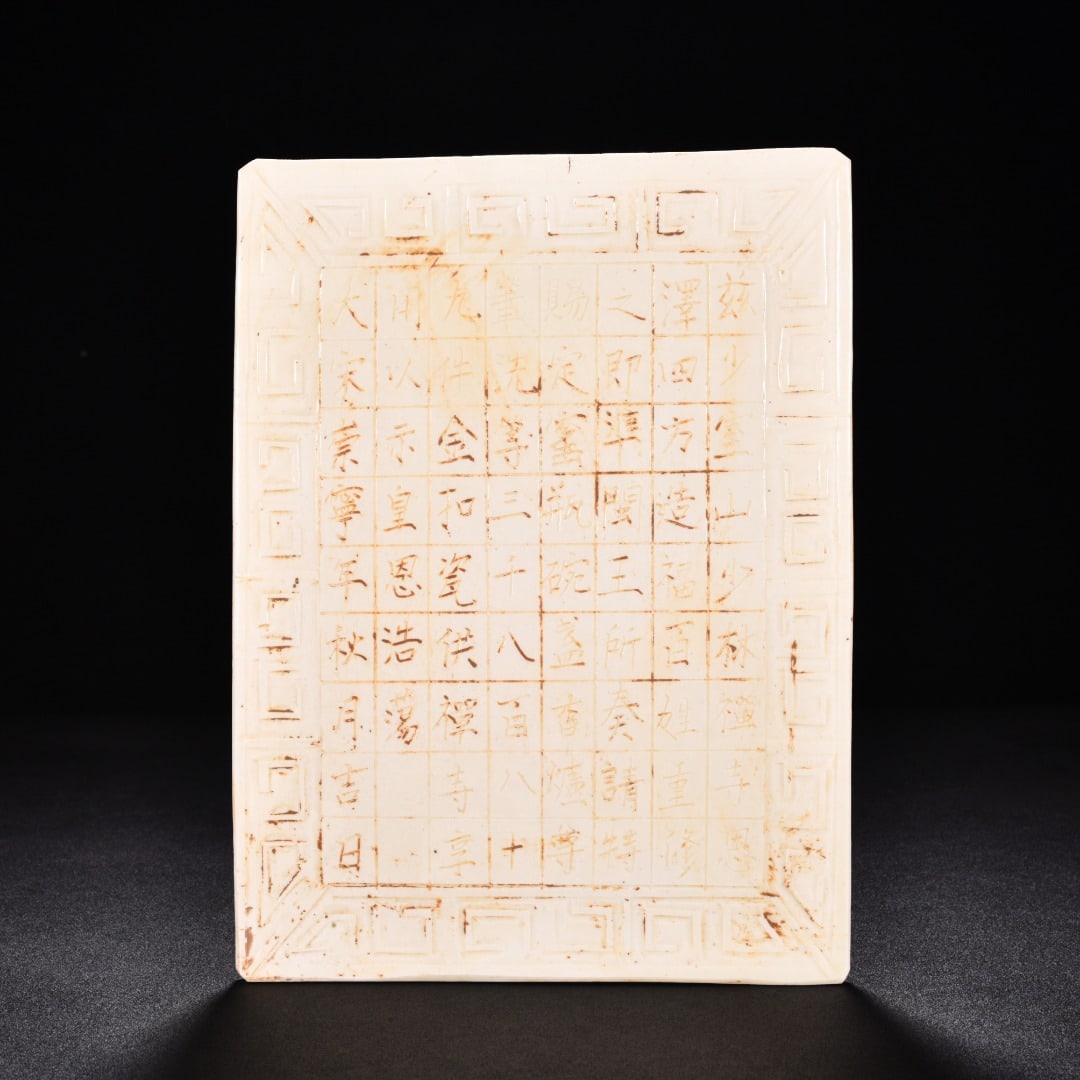 兹少室山少林禪寺恩
澤四方造福百姓重修
之即準王所奏請特
賜定窰瓶碗盞香爐尊
筆洗等三千八百八十
九件金扣瓷供禪寺享
用以示皇恩浩蕩
大宋崇寧年秋月吉日